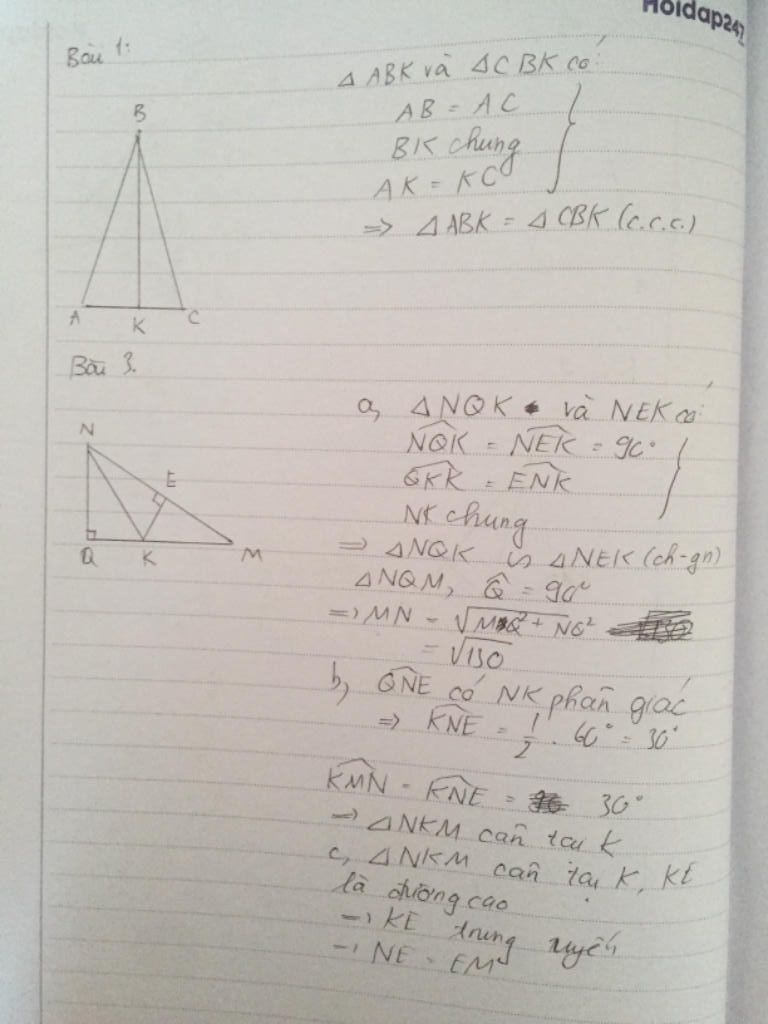 Hoidap247
Bài 1:
△ ABK và △CBK có:
AB = AC
BK chung
AK = KC
=> △ABK = △CBK (c.c.c.)
B
A
K
C
Bài 3.
a, △NQK và NEK có:
NQK = NEK = 90°
QKK = ENK
NK chung
=> △NQK ∽ △NEK (ch-gn)
△NQM, Q = 90°
=> MN = √MQ² + NQ²
= √130
b, QNE có NK phân giác
=> KNE = 1/2 . 60° = 30°
KMN = KNE = 30°
=> △NKM cân tại K
c, △NKM cân tại K, KE
là đường cao
=> KE trung tuyến
=> NE = EM
N
E
Q
K
M